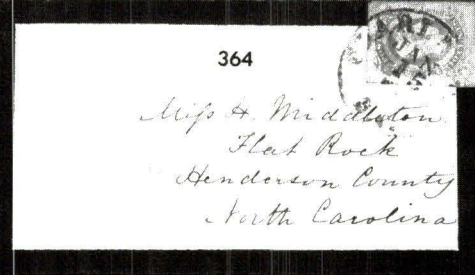 364
JAN
15
Miss H. Middleton
Flat Rock
Henderson County
North Carolina